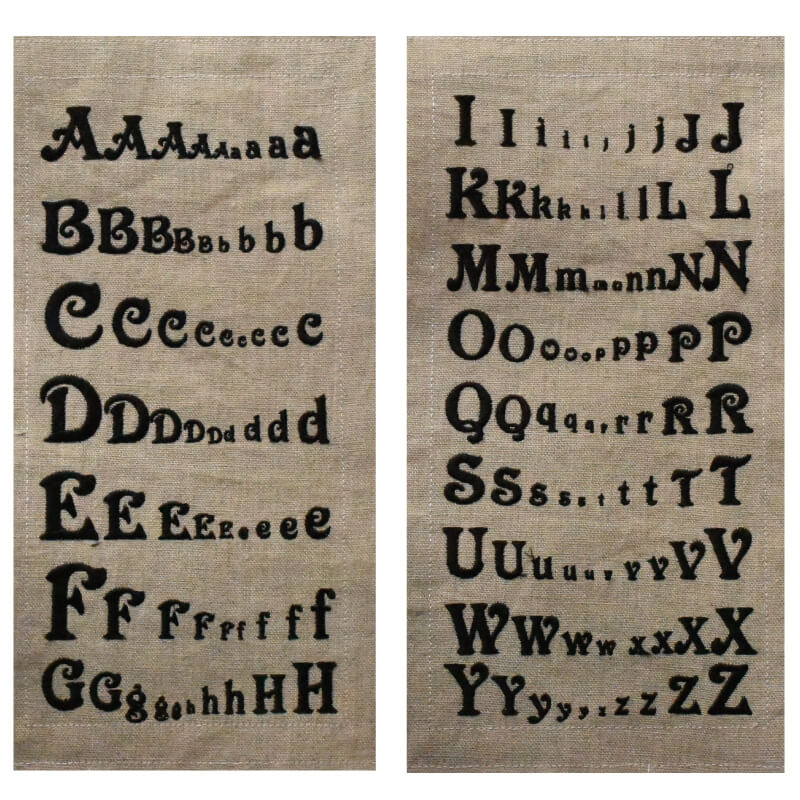 AAAAAaaaa
BBBBBbbbb
CCCCccccc
DDDDDdddd
EEEEEeeee
FFFFFffff
GGggghhhHH
IIiiijjjJJ
KKkkklllLL
MMmmmnnnNN
OOooopppPP
QQqqqrrrRR
SSssstttTT
UUuuuvvvVV
WWwwxxXX
YYyyyzzzZZ